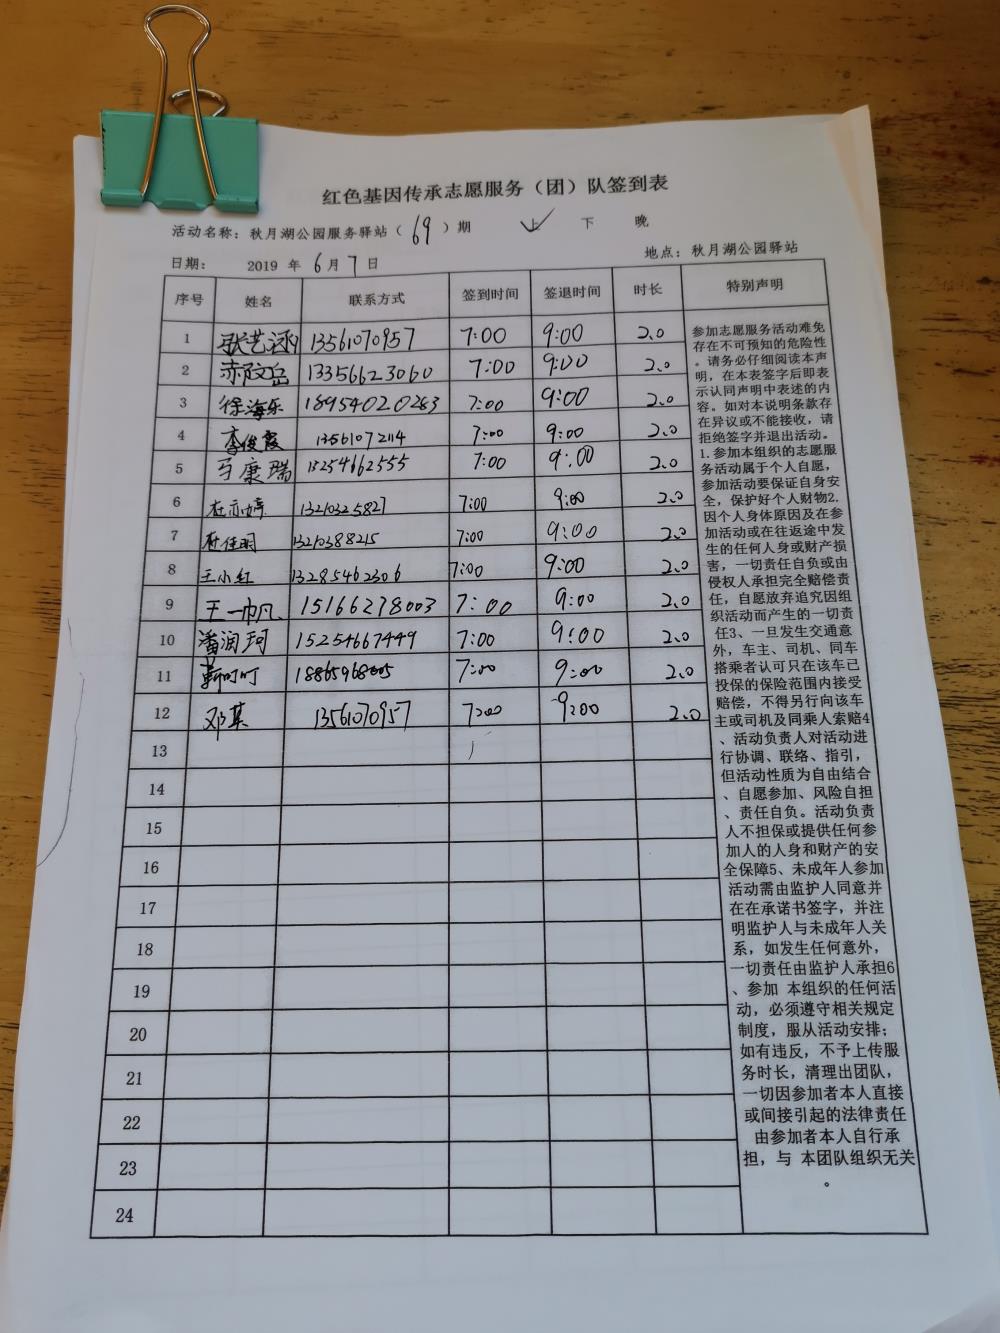 红色基因传承志愿服务（团）队签到表
活动名称：秋月湖公园服务驿站（69）期 上 下 晚
日期： 2019 年 6 月 7 日 地点：秋月湖公园驿站
序号 姓名 联系方式 签到时间 签退时间 时长 特别声明
1 张艺涵 13561070957 7:00 9:00 2.0
2 郝文岳 13356623060 7:00 9:00 2.0
3 徐海乐 18954020283 7:00 9:00 2.0
4 李俊霞 13561072114 7:00 9:00 2.0
5 马康瑞 13254662555 7:00 9:00 2.0
6 杜亦婷 13210325827 7:00 9:00 2.0
7 杜佳玥 13210388215 7:00 9:00 2.0
8 王小红 13285462306 7:00 9:00 2.0
9 王一帆 15166278003 7:00 9:00 2.0
10 潘润珂 15254667449 7:00 9:00 2.0
11 靳叮叮 7:00 9:00 2.0
12 邓某 13561070957 7:00 9:00 2.0
13
14
15
16
17
18
19
20
21
22
23
24
参加志愿服务活动难免
存在不可预知的危险性
。请务必仔细阅读本声
明，在本表签字后即表
示认同声明中表述的内
容。如对本说明条款存
在异议或不能接收，请
拒绝签字并退出活动。
1.参加本组织的志愿服
务活动属于个人自愿，
参加活动要保证自身安
全，保护好个人财物2.
因个人身体原因及在参
加活动或在往返途中发
生的任何人身或财产损
害，一切责任自负或由
侵权人承担完全赔偿责
任，自愿放弃追究因组
织活动而产生的一切责
任3、一旦发生交通意
外，车主、司机、同车
搭乘者认可只在该车已
投保的保险范围内接受
赔偿，不得另行向该车
主或司机及同乘人索赔4
、活动负责人对活动进
行协调、联络、指引，
但活动性质为自由结合
、自愿参加、风险自担
、责任自负。活动负责
人不担保或提供任何参
加人的人身和财产的安
全保障5、未成年人参加
活动需由监护人同意并
在在承诺书签字，并注
明监护人与未成年人关
系，如发生任何意外，
一切责任由监护人承担6
、参加 本组织的任何活
动，必须遵守相关规定
制度，服从活动安排；
如有违反，不予上传服
务时长，清理出团队，
一切因参加者本人直接
或间接引起的法律责任
由参加者本人自行承
担，与 本团队组织无关
。